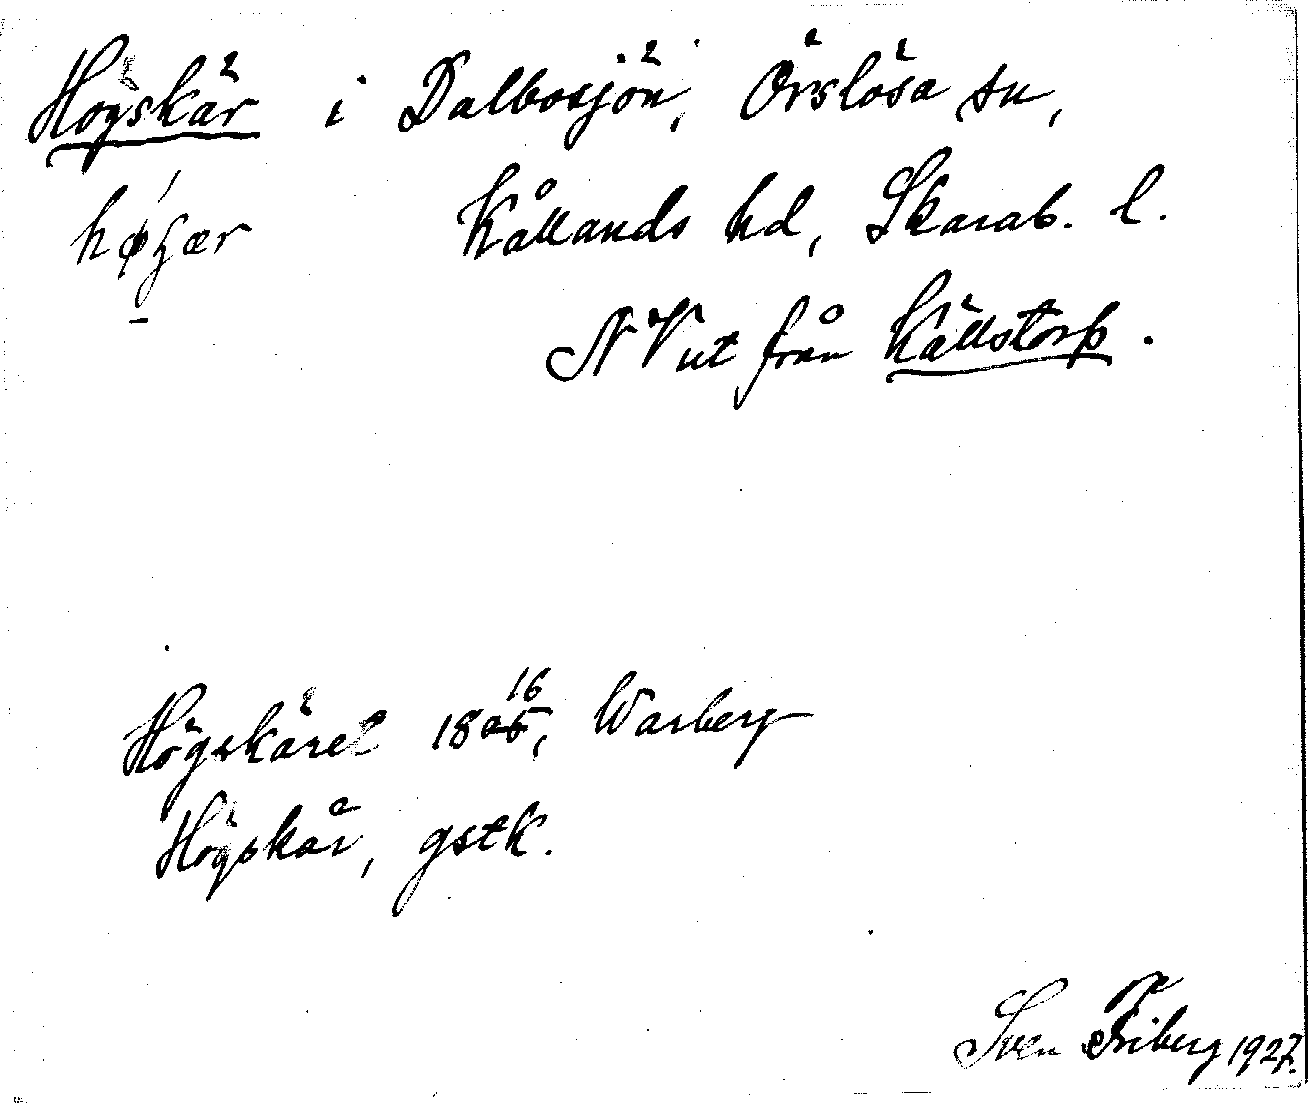 Högskär i Dalbosjön, Örslösa sn,
høʒær Kållands hd, Skarab. l.
NV ut från Källstorp.
Högskäret 1816, Warberg
Högskår, gstk.
Sven Friberg 1927.